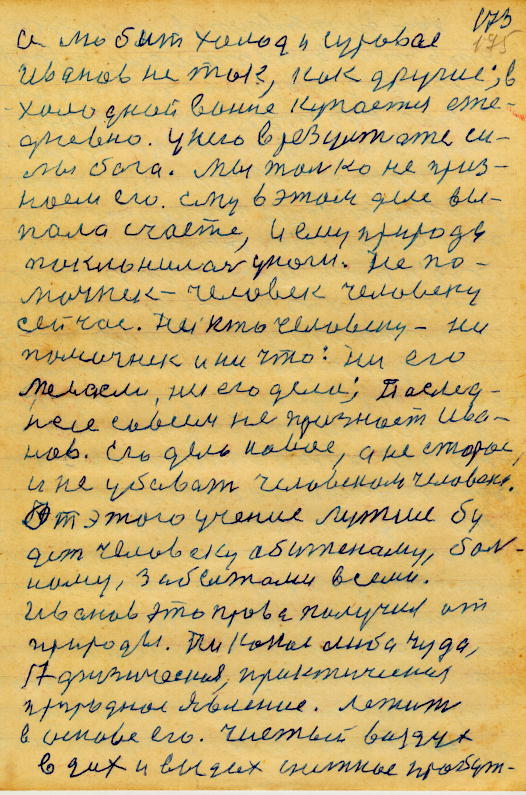 173
175
и любит холод и суровое
Иванов не так, как другие; в
холодной ванне купается еже-
дневно. У него в результате си-
лы бога. Мы только не приз-
наем его. Ему в этом деле вы-
пала счастье, и ему природа
поклонилась у ноги. Не по-
мочнек - человек человеку
сейчас. Никто человеку - ни
помочнек и ни что: ни его
мысли, ни его дела; Послед-
нее совсем не признает Ива-
нов. Его дело новое, а не старое,
и не убиват человеком человека.
От этого учение лутше бу
дет человеку обиженаму, бол-
ному, забытами всеми.
Иванов это права получил от
природы. Ни какое либа чуда,
А физическая, практическая
природное явление. Лежит
в основе его. Чистый воздух
вдох и выдох снежное пробуж-